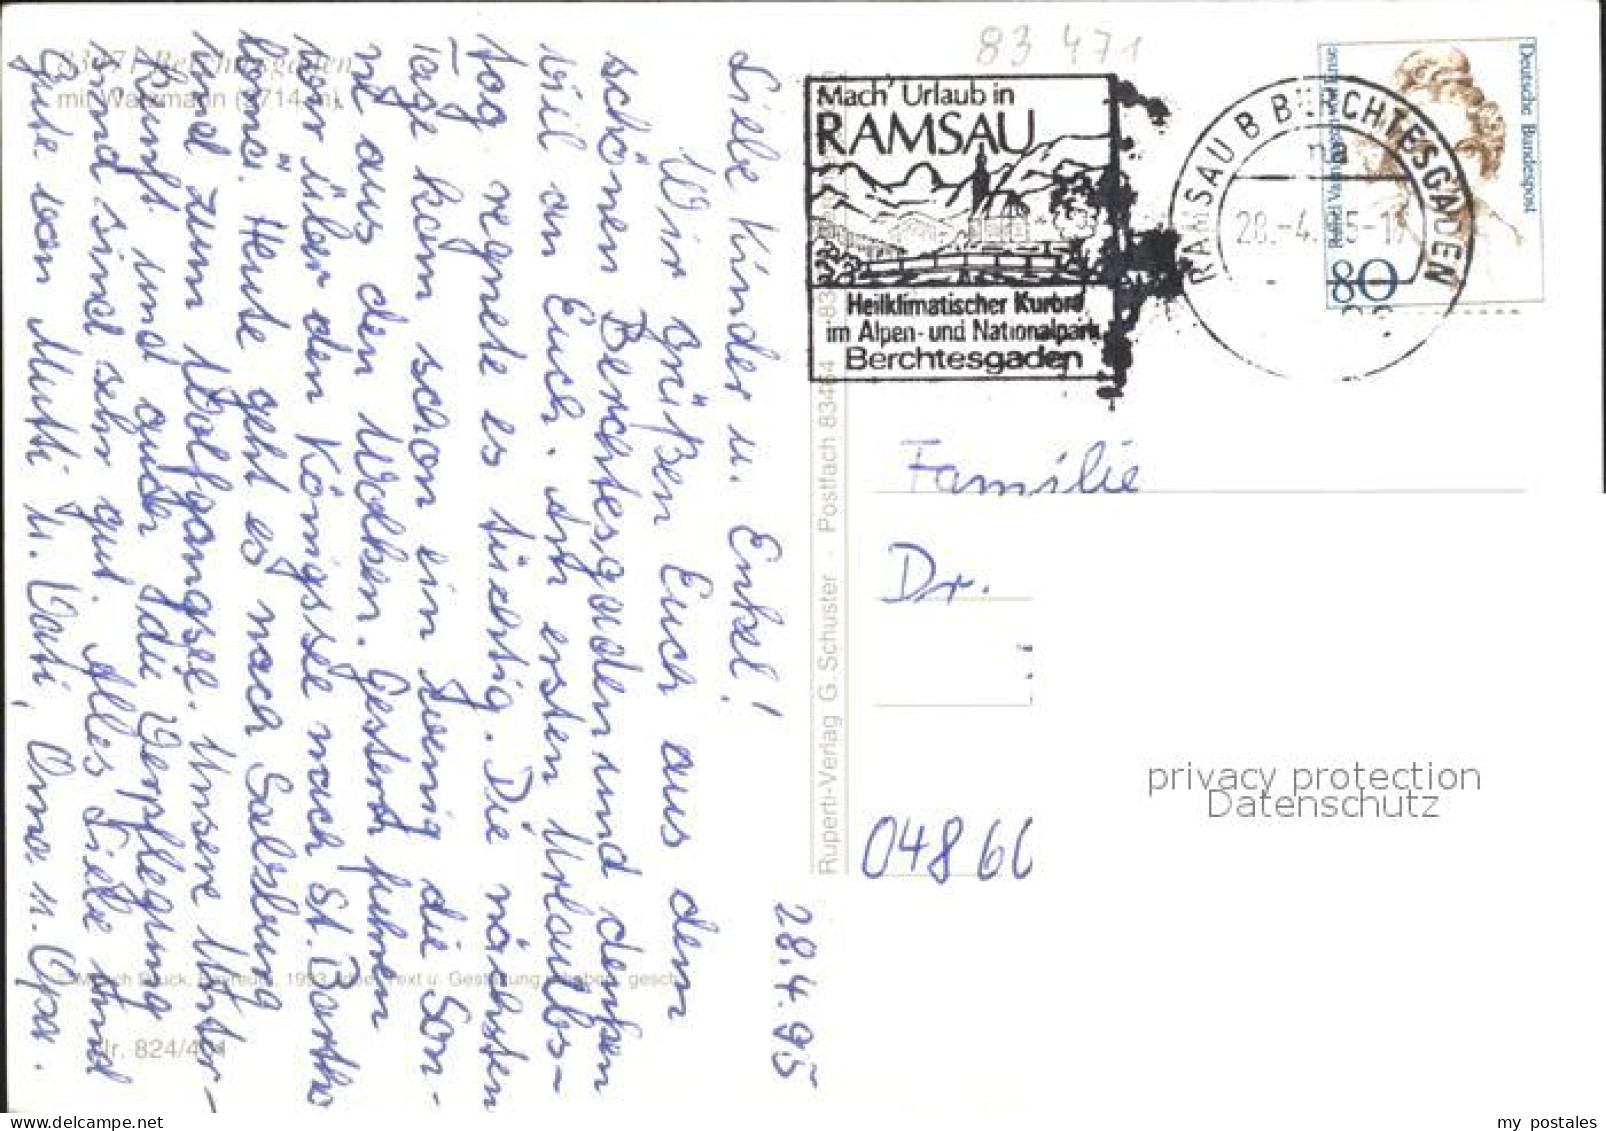 83471 Berchtesgaden
mit Watzmann (2714 m)
28.4.95
Liebe Kinder u. Enkel!
Wir grüßen Euch aus dem
schönen Berchtesgaden und denken
viel an Euch. Am ersten Urlaubs-
tag regnete es tüchtig. Die nächsten
Tage kam schon ein wenig die Son-
ne aus den Wolken. Gestern fuhren
wir über den Königssee nach St. Bartho
lomä. Heute geht es nach Salzburg
und zum Wolfgangsee. Unsere Unter-
kunft und auch die Verpflegung
sind sehr gut. Alles Liebe und
Gute von Mutti u. Vati, Oma u. Opa.
Nr. 824/404
Ruperti-Verlag G. Schuster - Postfach 83464
83 471
Mach' Urlaub in
RAMSAU
Heilklimatischer Kurort
im Alpen- und Nationalpark
Berchtesgaden
RAMSAU B BERCHTESGADEN
28.-4.
Deutsche Bundespost
80
Familie
Dr.
04866
privacy protection
Datenschutz
my postales